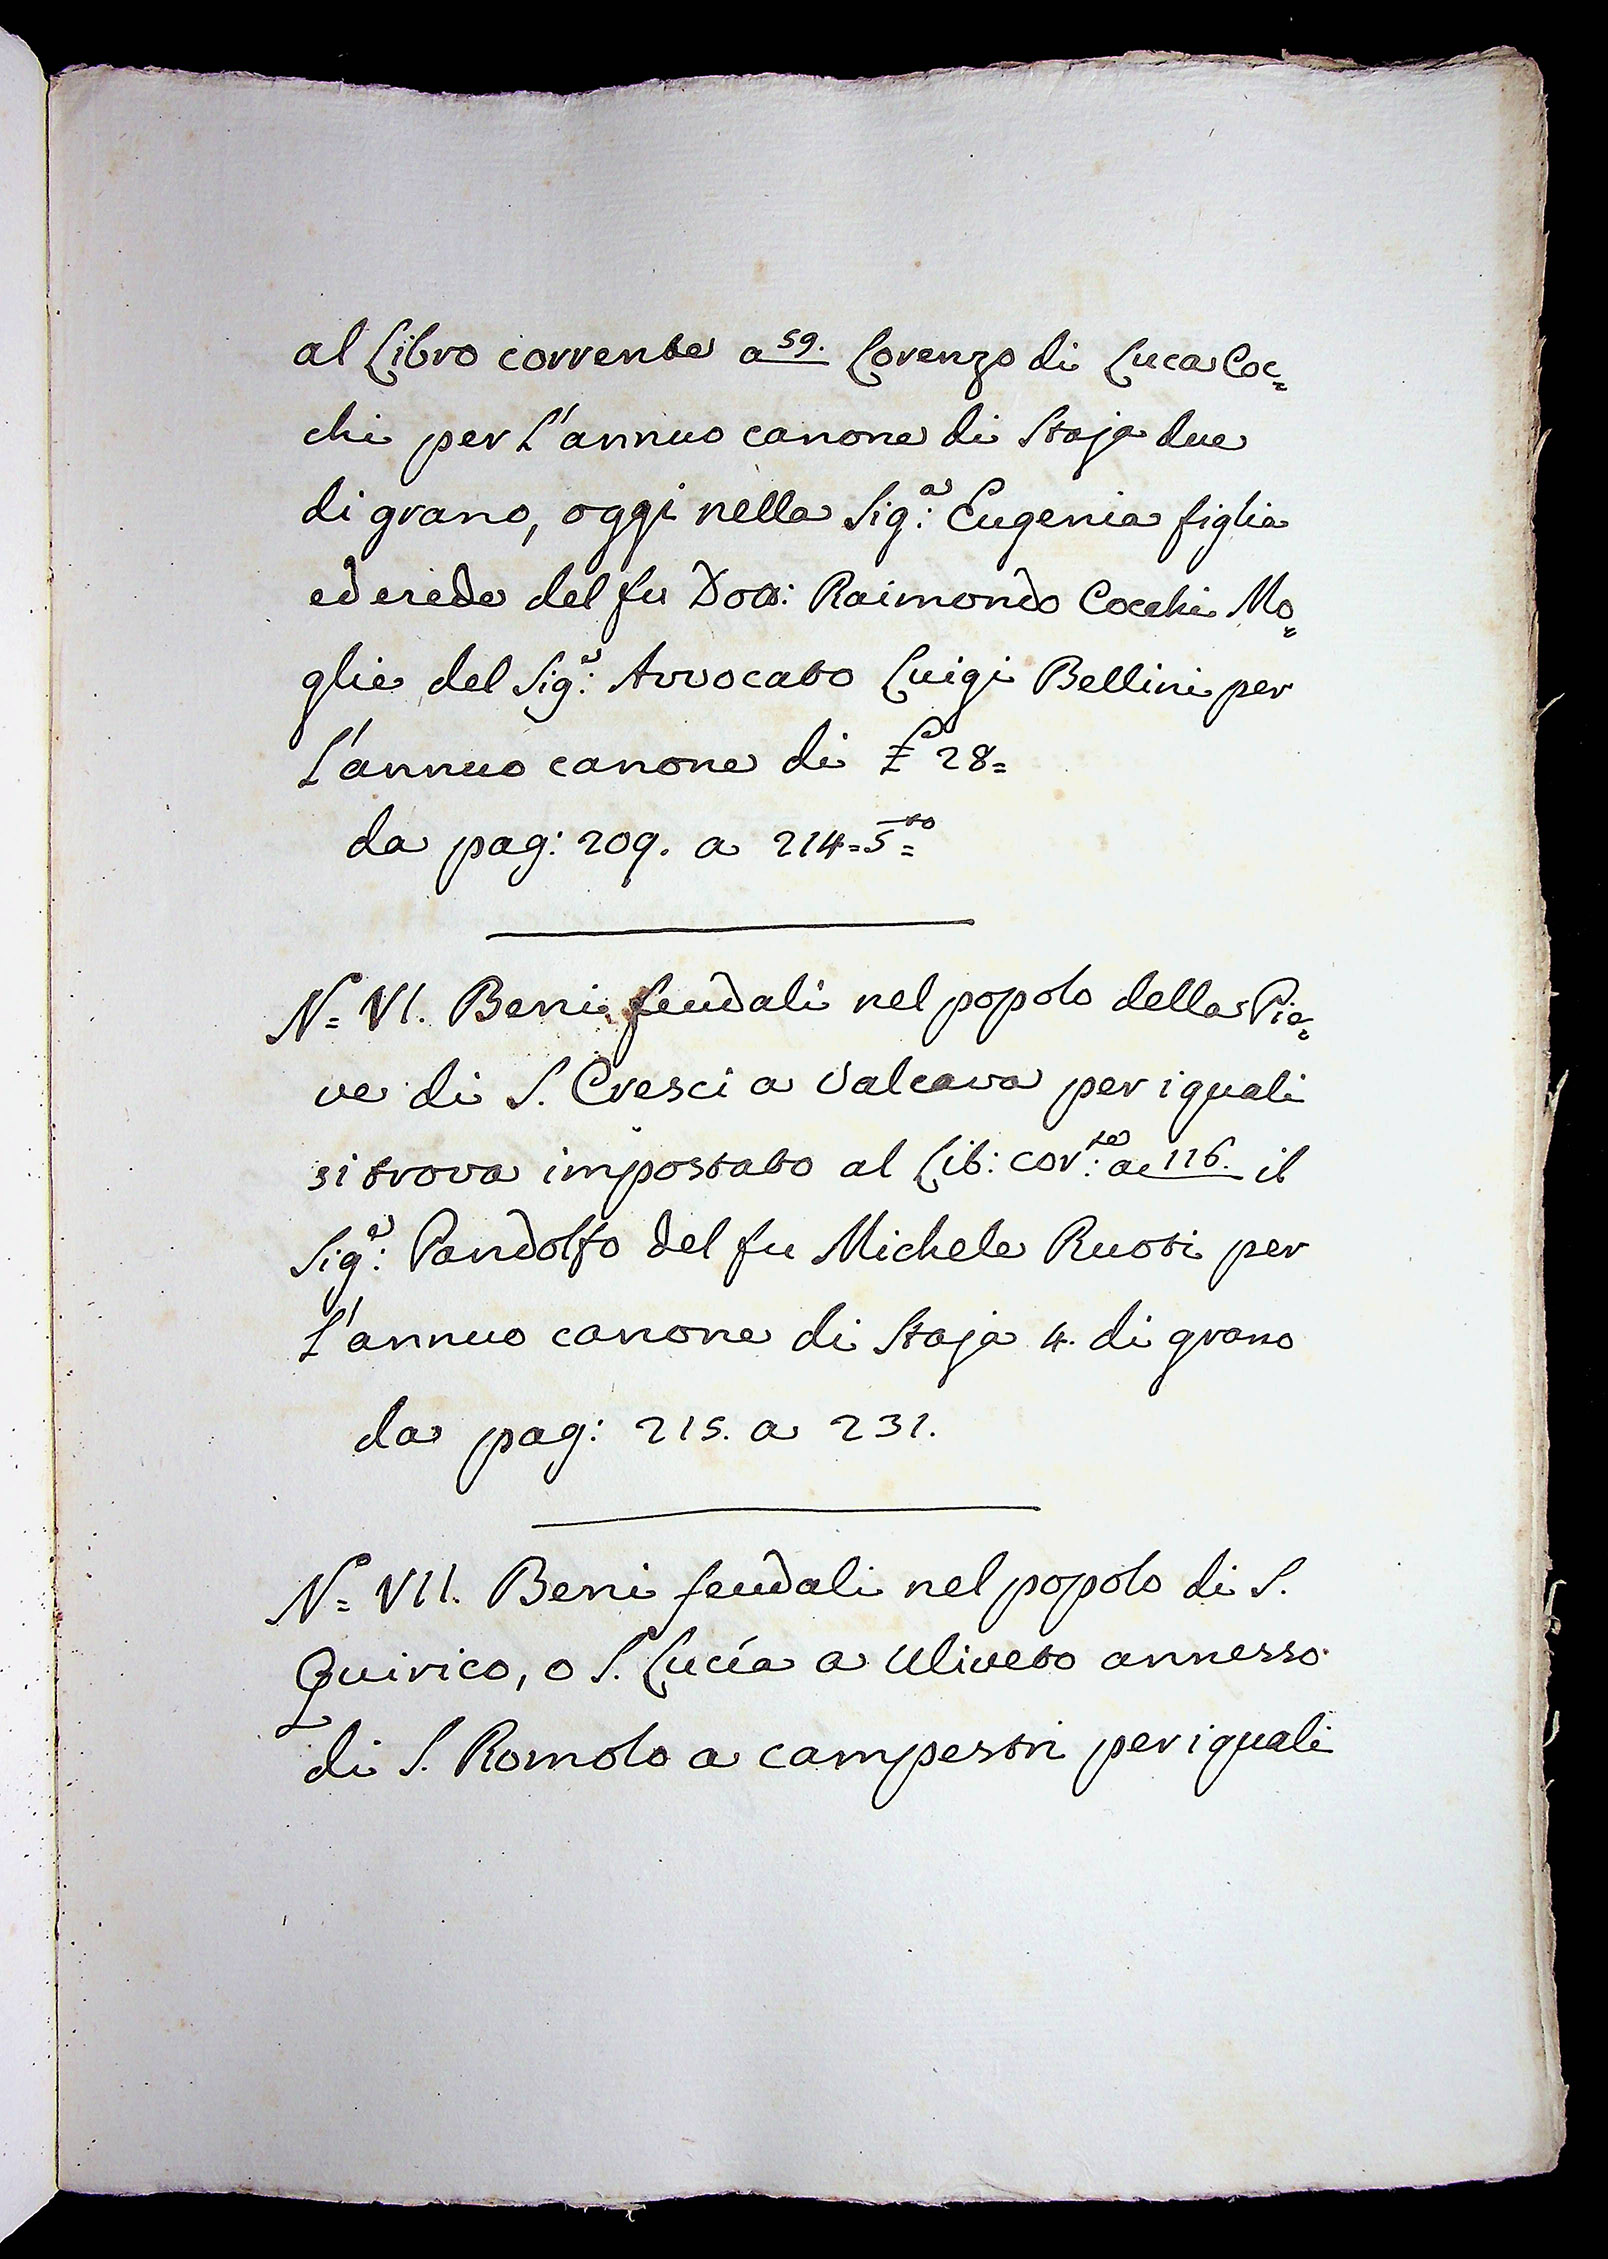 al Libro corrente a 59. Lorenzo di Luca Coc=
chi per L'annuo canone di Staja due
di grano, oggi nella Sig:a Eugenia figlia
ed erede del fu Dott: Raimondo Cocchi Mo=
glie del Sig:e Avvocato Luigi Bellini per
L'annuo canone di £ 28=
da pag: 209. a 214=5to=
N= VI. Beni feudali nel popolo della Pie=
ve di S. Cresci a Valcava per i quali
si trova impostato al Lib: cor:te ac 116. il
Sig:e Pandolfo del fu Michele Ruoti per
L'annuo canone di Staja 4. di grano
da pag: 215. a 231.
N= VII. Beni feudali nel popolo di S.
Quirico, o S. Lucía a Uliveto annesso
di S. Romolo a campestri per i quali